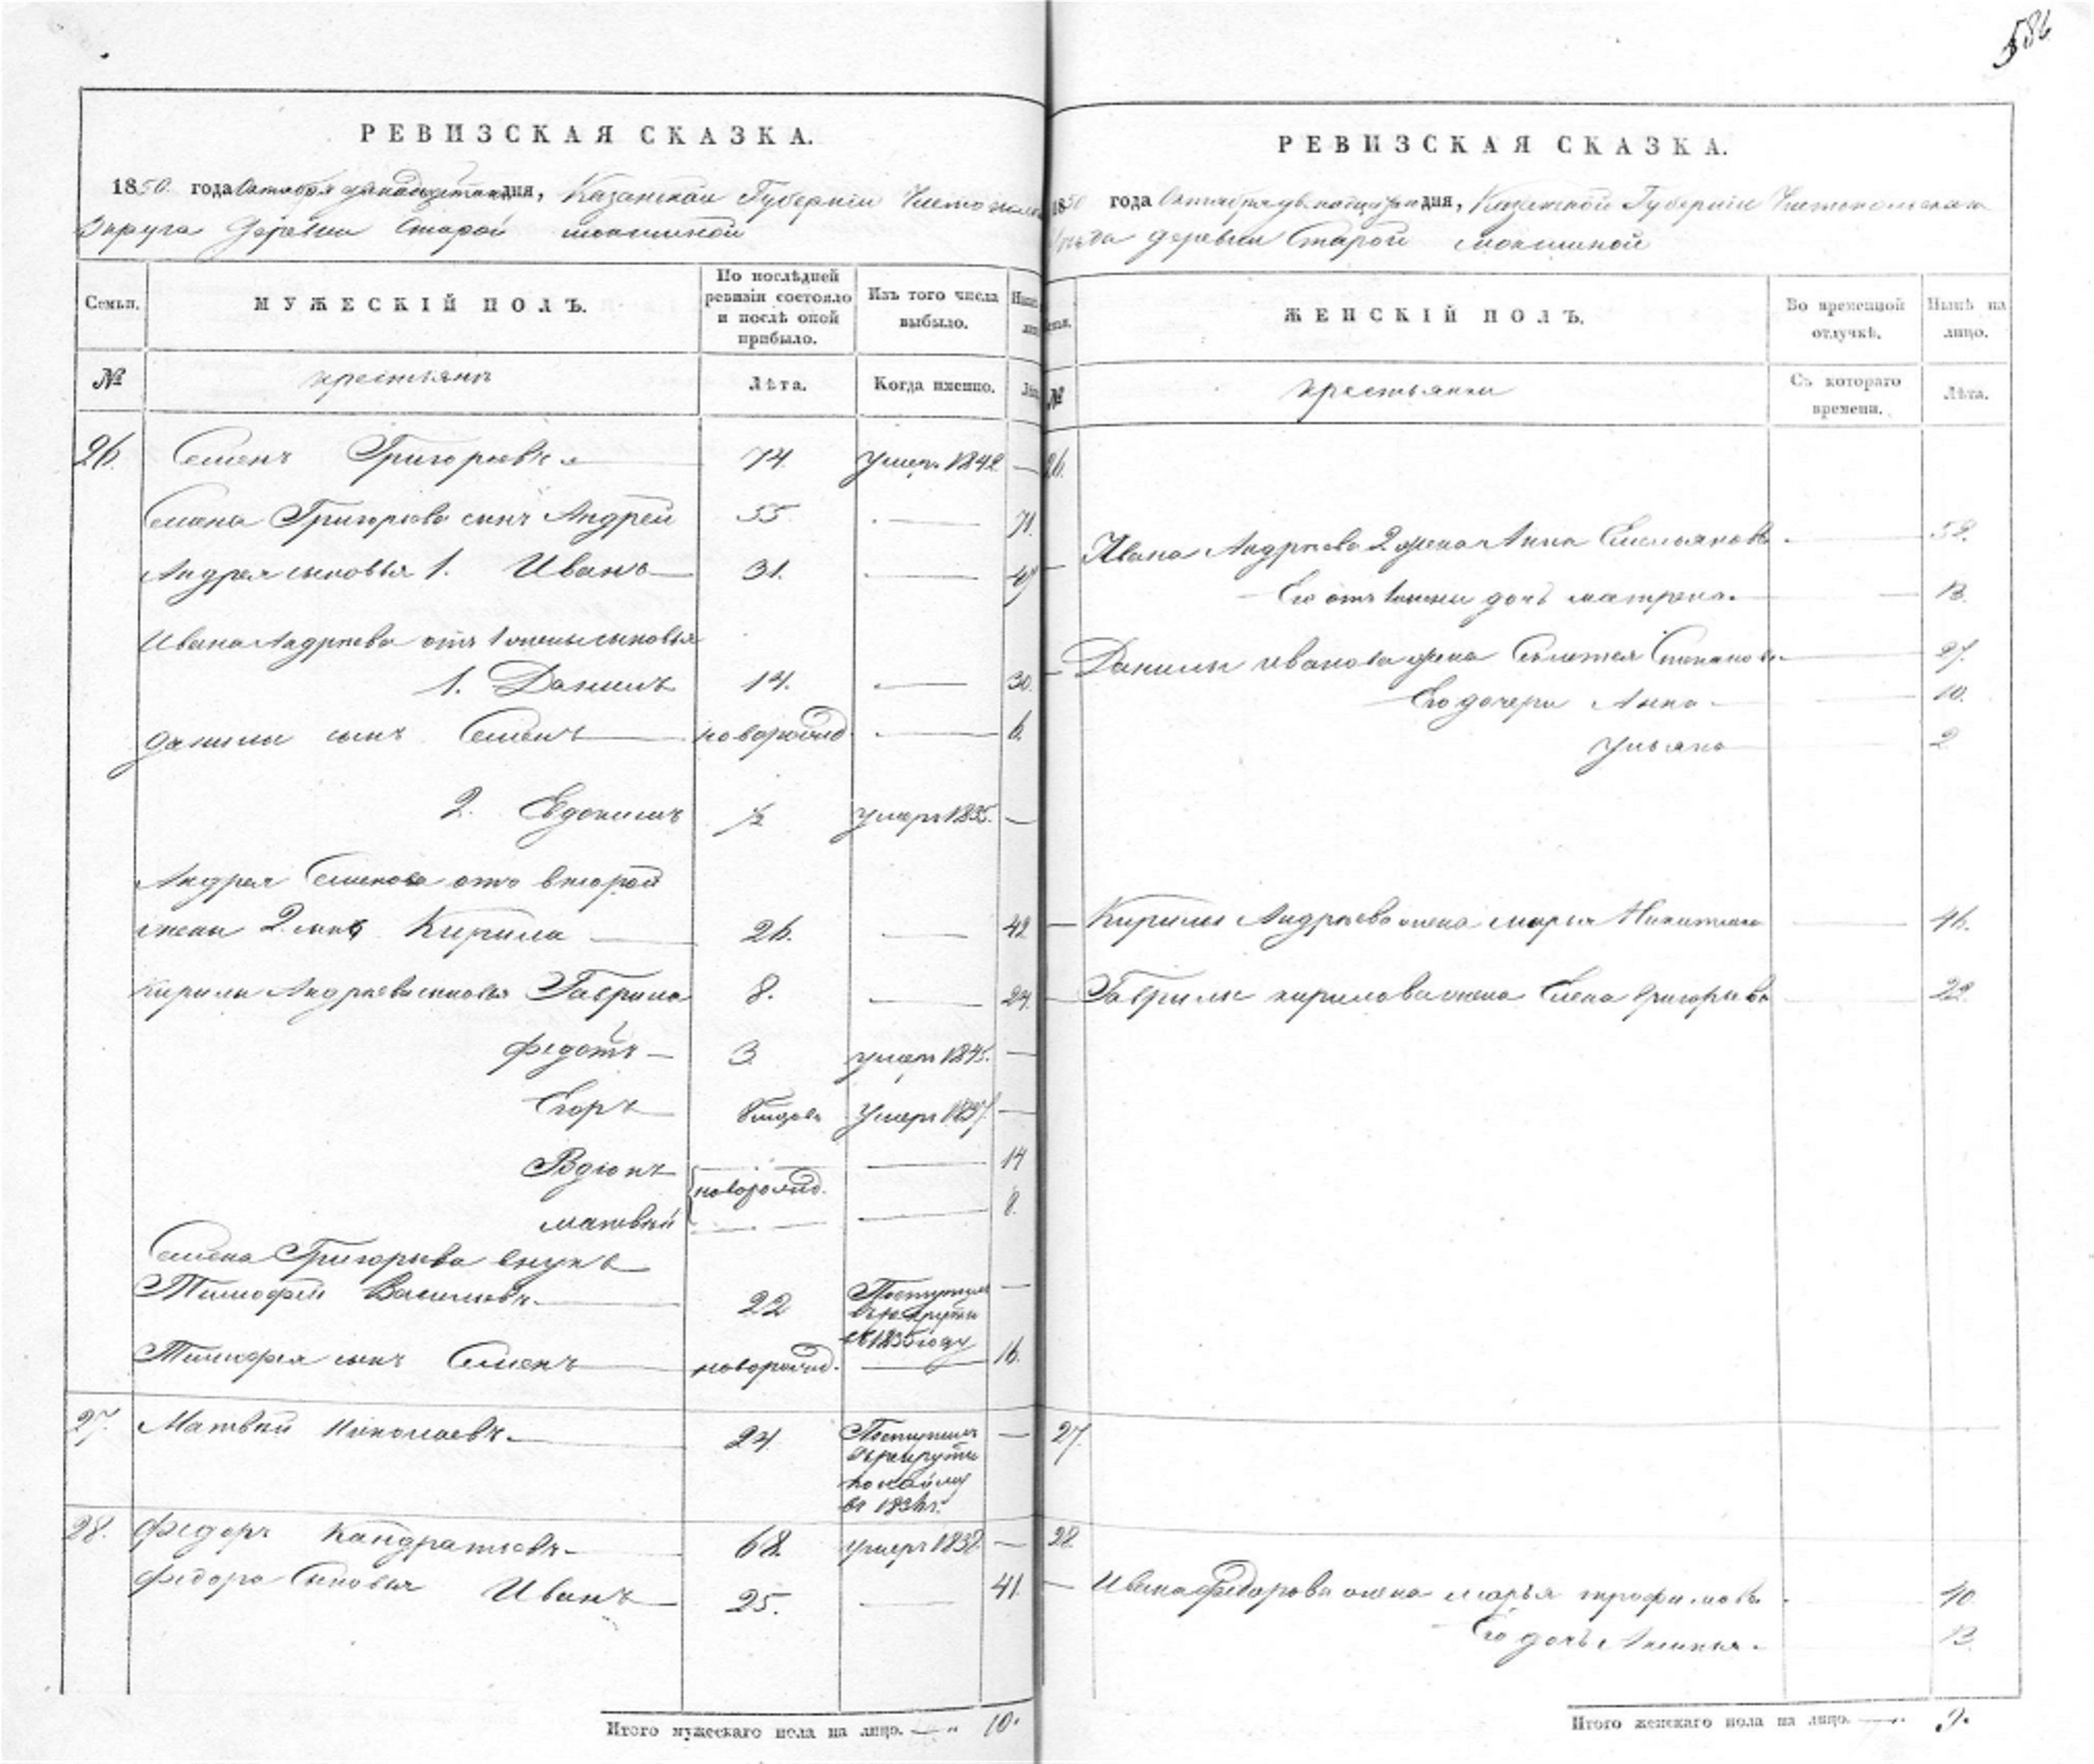 586
РЕВИЗСКАЯ СКАЗКА.
1850 года Октября двенадцатаго дня, Казанской Губерніи Чистопольскаго
Округа Деревни Старой мокшиной
Семьи.
МУЖЕСКІЙ ПОЛЪ.
По послѣдней ревизіи состояло и послѣ оной прибыло.
Изъ того числа выбыло.
№
крестьянъ
Лѣта.
Когда именно.
26. Семенъ Григорьевъ 74. умеръ 1842 —
Семена Григорьева сынъ Андрей 55. — 71.
Андрея сыновья 1. Иванъ 31. — 47
Ивана Андреева отъ 1 жены сыновья
1. Данилъ 14. — 30.
Данилы сынъ Семенъ новорожд. — 6.
2. Евдокимъ ½ умеръ 1835. —
Андрея Семенова отъ второй
жены 2 сынъ Кирила 26. — 42
Кирилы Андреева сыновья Гаврила 8. — 24.
Федотъ — 3. умеръ 1845. —
Егоръ умеръ 1837. —
— 14
новорожд.
Матвѣй — 8.
Семена Григорьева внукъ
Тимофей Васильевъ 22 Поступилъ въ рекруты въ 1835 году —
Тимофея сынъ Семенъ новорожд. — 16.
27. Матвѣй Николаевъ 24. Поступилъ въ рекруты по найму въ —
28. Федоръ Кандратьевъ 68. умеръ 1838 —
Федора Сыновья Иванъ 25. — 41.
Итого мужескаго пола на лицо. — 10.
РЕВИЗСКАЯ СКАЗКА.
1850 года Октября двенадцатаго дня, Казанской Губерніи Чистопольскаго
уѣзда деревни Старой мокшиной
ЖЕНСКІЙ ПОЛЪ.
Во временной отлучкѣ.
Нынѣ на лицо.
№
крестьянки
Съ котораго времени.
Лѣта.
26.
Ивана Андреева 2 жена Анна Емельянова — 52.
Его отъ 1 жены дочь матрена — 13.
Данилы Иванова жена Степанова — 27.
Его дочери Анна — 10.
Ульяна 2
Кирилы Андреева жена марья Никитина — 46.
Гаврилы кирилова жена Елена григорьева — 22.
27.
28.
Ивана федорова жена марья трофимова 40.
Его дочь 13.
Итого женскаго пола на лицо. — 9.